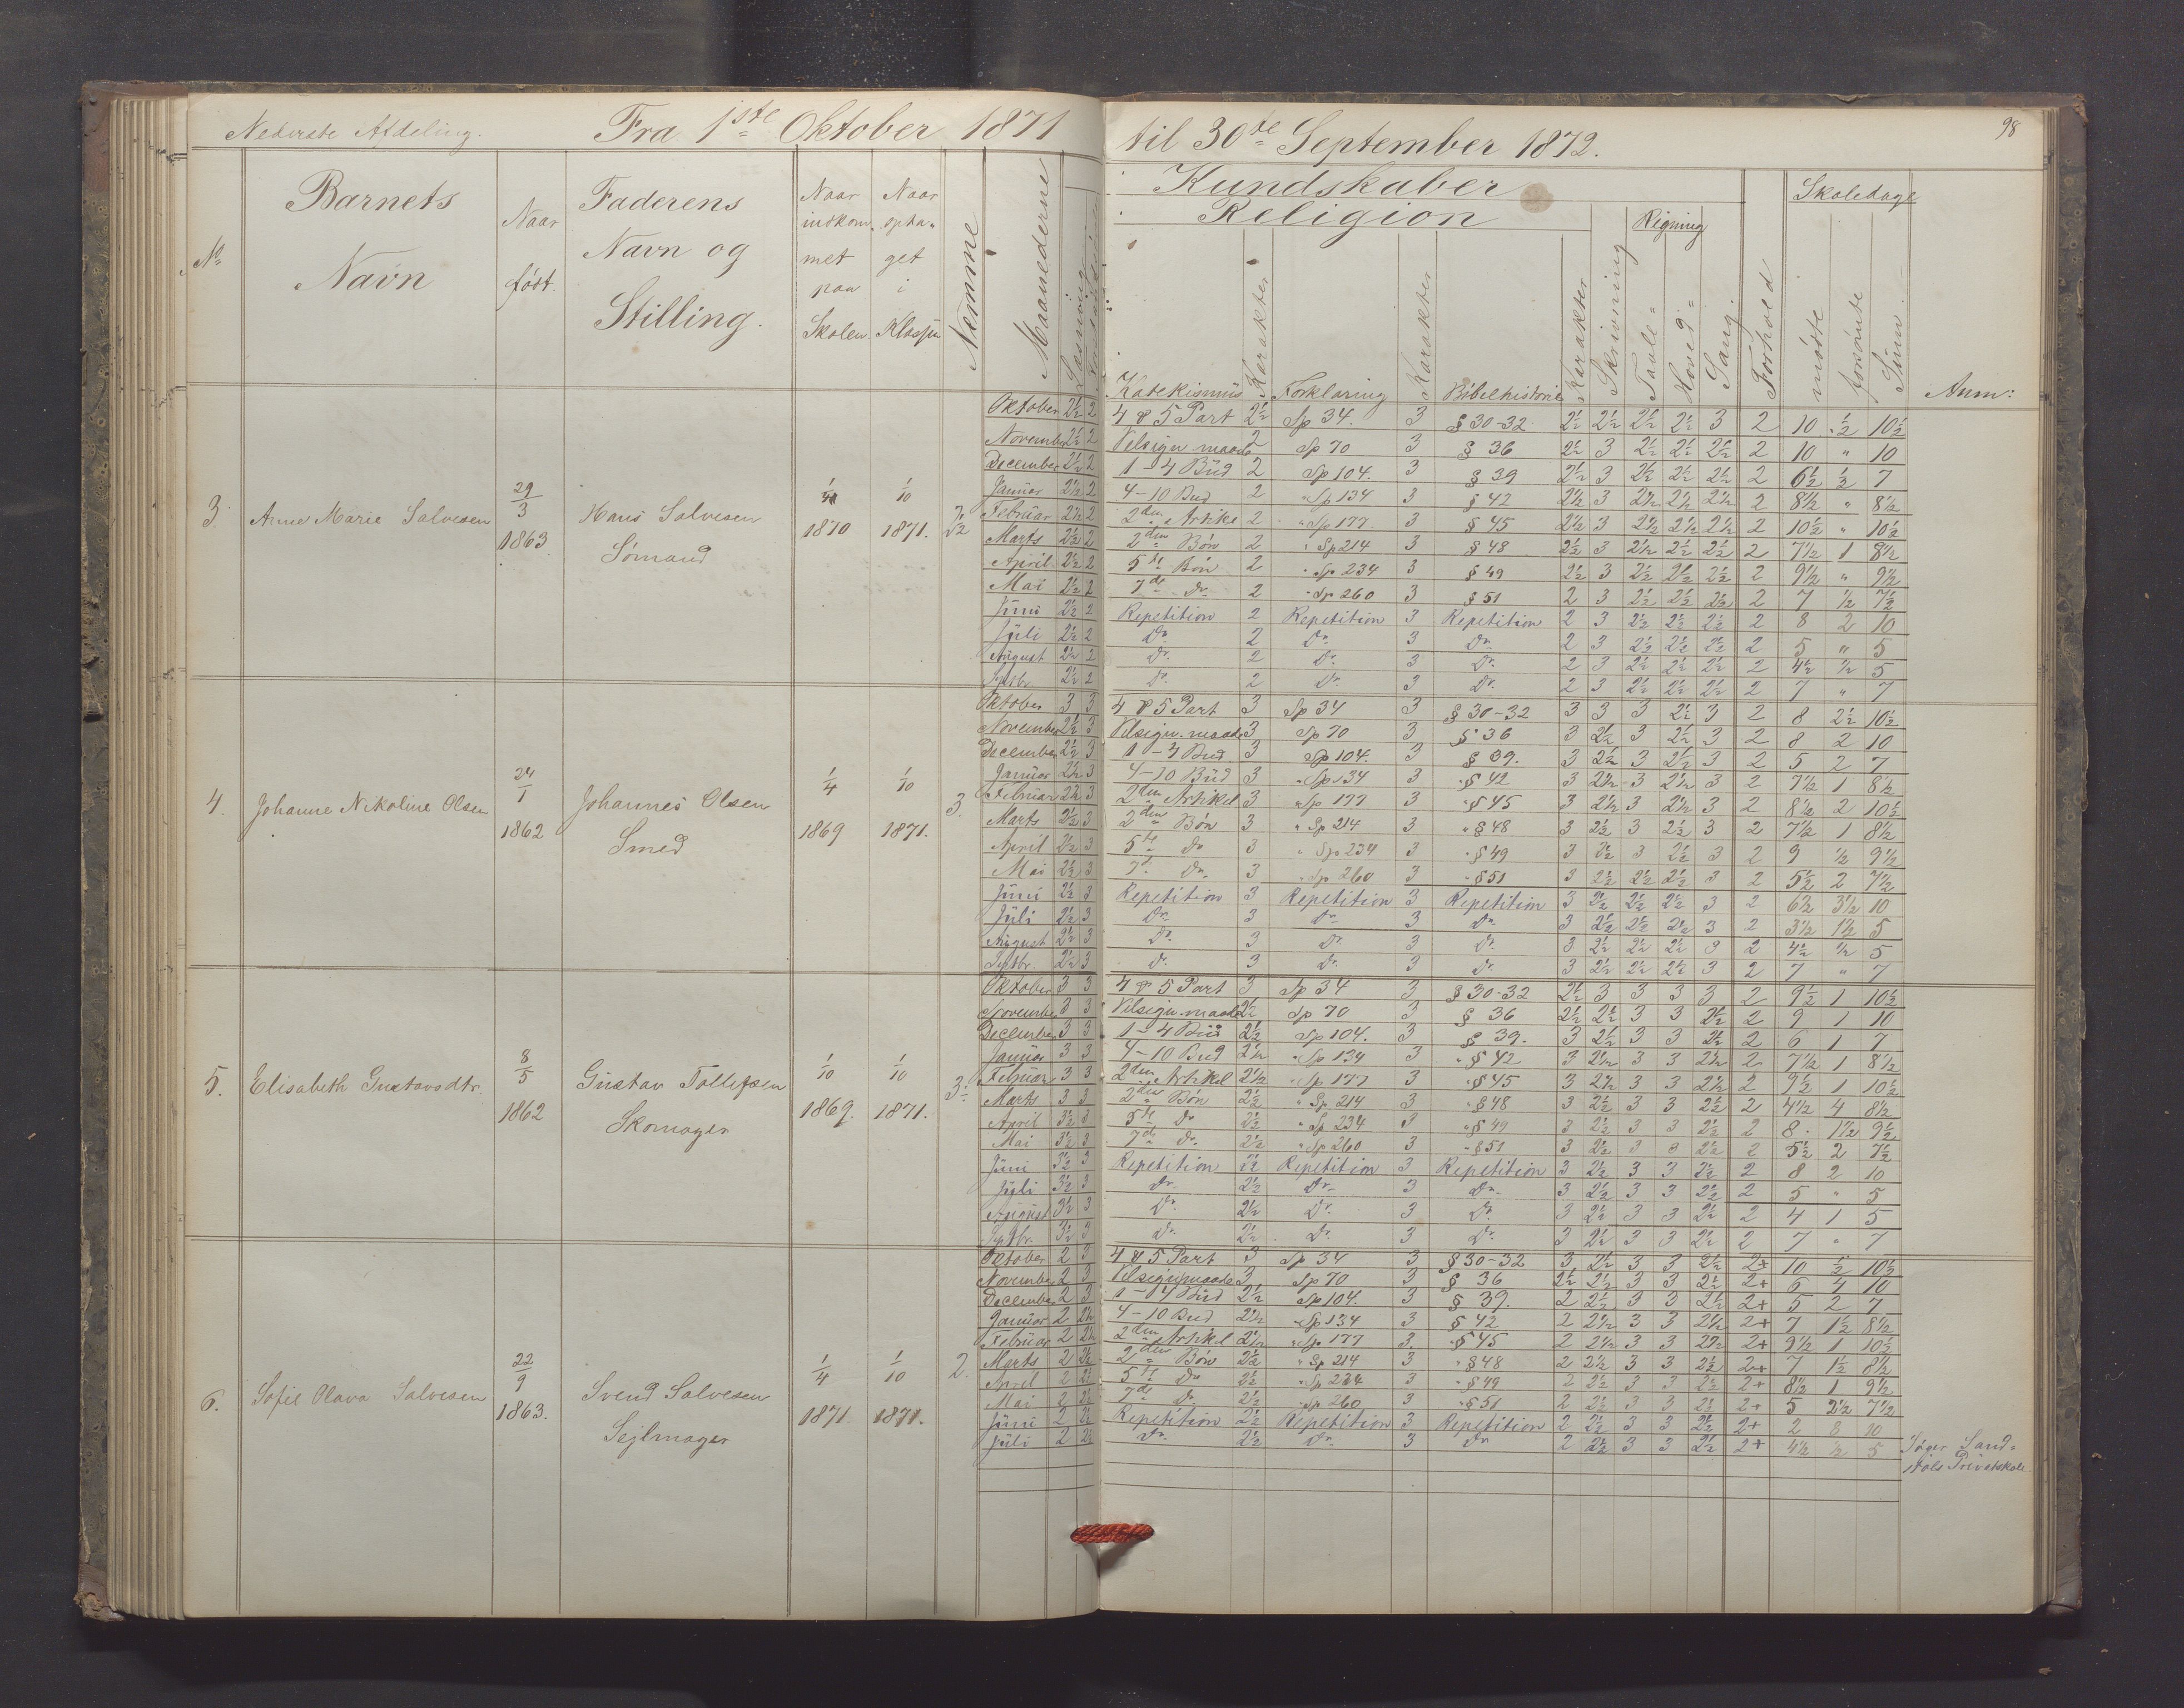 Nederste Afdeling. Fra 1ste Oktober 1871 til 30te September 1872. 98
No
Barnets Navn
Naar født.
Faderens Navn og Stilling.
Naar indkommet paa Skolen
Naar optaget i Klassen
Nemme
Maanederne
Læsning
Kundskaber
Religion
Katekismus
Karakter
Forklaring
Karakter
Bibelhistorie
Karakter
Skrivning
Regning
Tavle=
Hoved=
Sang.
Forhold
Skoledage
mødte
forsømte
Sum.
Anm:
3. Anne Marie Salvesen 29/3 1863 Hans Salvesen Sømand 1870 1/10 1871.
Oktober 2½ 2 4 & 5 Part 2½ Sp 34. 3 § 30-32 2½ 2½ 2½ 2½ 3 2 10 ½ 10½
November 2½ 2 Velsign. maade 2 Sp 70 3 § 36 2½ 3 2½ 2½ 2½ 2 10 " 10
December 2½ 2 1-4 Bud 2 Sp 104. 3 § 39 2½ 3 2½ 2½ 2½ 2 6½ ½ 7
Januar 2½ 2 4-10 Bud 2 " Sp 134 3 § 42 2½ 3 2½ 2½ 2½ 2 8½ " 8½
Februar 2½ 2 2den Artikel 2 " Sp 177 3 § 45 2½ 3 2½ 2½ 2½ 2 10½ " 10½
Marts 2½ 2 2den Bøn 2 " Sp 214 3 § 48 2½ 3 2½ 2½ 2½ 2 7½ 1 8½
April 2½ 2 5te Bøn 2 " Sp 234 3 § 49 2½ 3 2½ 2½ 2½ 2 9½ " 9½
Mai 2½ 2 7de Do 2 " Sp 260 3 § 51 2 3 2½ 2½ 2½ 2 7 ½ 7½
Juni 2½ 2 Repetition 2 Repetition 3 Repetition 2 3 2½ 2½ 2½ 2 8 2 10
Juli 2½ 2 Do 2 Do 3 Do 2 3 2½ 2½ 2½ 2 5 " 5
August 2½ 2 Do 2 Do 3 Do 2 3 2½ 2½ 2½ 2 4½ ½ 5
Septbr. 2½ 2 Do 2 Do 3 Do 2 3 2½ 2½ 2½ 2 7 " 7
4. Johanne Nikoline Olsen 24/1 1862 Johannes Olsen Smed 1/4 1869 1/10 1871. 3.
Oktober 3 3 4 & 5 Part 3 Sp 34 3 § 30-32 3 3 3 2½ 3 2 8 2½ 10½
November 2½ 3 Velsign. maade 3 Sp 70 3 § 36 3 2½ 3 2½ 3 2 8 2 10
December 2½ 3 1-4 Bud 3 Sp 104. 3 § 39. 3 2½ 3 2½ 3 2 5 2 7
Januar 2½ 3 4-10 Bud 3 " Sp 134 3 " § 42 3 2½ 3 2½ 3 2 7½ 1 8½
Februar 2½ 3 2den Artikel 3 " Sp 177 3 " § 45 3 2½ 3 2½ 3 2 8½ 2 10½
Marts 2½ 3 2den Bøn 3 " Sp 214 3 " § 48 3 2½ 3 2½ 3 2 7½ 1 8½
April 2½ 3 5te Do 3 " Sp 234 3 " § 49 3 2½ 3 2½ 3 2 9 ½ 9½
Mai 2½ 3 7de Do 3 " Sp 260 3 " § 51 3 2½ 2½ 2½ 3 2 5½ 2 7½
Juni 2½ 3 Repetition 3 Repetition 3 Repetition 3 2½ 2½ 2½ 3 2 6½ 3½ 10
Juli 2½ 3 Do 3 Do 3 Do 3 2½ 2½ 2½ 3 2 3½ 1½ 5
August 2½ 3 Do 3 Do 3 Do 3 2½ 2½ 2½ 3 2 4½ ½ 5
Septbr. 2½ 3 Do 3 Do 3 Do 3 2½ 2½ 2½ 3 2 7 " 7
5. Elisabeth Gustavsdtr. 8/5 1862 Gustav Tollefsen Skomager 1/10 1869. 1/10 1871. 3.
Oktober 3 3 4 & 5 Part 3 Sp 34 3 § 30-32 2½ 3 3 3 3 2 9½ 1 10½
November 3 3 Velsign. maade 2½ Sp 70 3 § 36 2½ 2½ 3 3 2½ 2 9 1 10
December 3 3 1-4 Bud 2½ Sp 104. 3 § 39. 3 2½ 3 3 2½ 2 6 1 7
Januar 3 3 4-10 Bud 2½ " Sp 134 3 " § 42 3 2½ 3 3 2½ 2 7½ 1 8½
Februar 3 3 2den Artikel 2½ " Sp 177 3 " § 45 3 2½ 3 3 2½ 2 9½ 1 10½
Marts 3 3 2den Bøn 2½ " Sp 214 3 " § 48 3 2½ 3 3 2½ 2 4½ 4 8½
April 3½ 3 5te Do 2½ " Sp 234 3 " § 49 3 2½ 3 3 2½ 2 8 1½ 9½
Mai 3½ 3 7de Do 2½ " Sp 260 3 " § 51 3 2½ 3 3 2½ 2 5½ 2 7½
Juni 3½ 3 Repetition 2½ Repetition 3 Repetition 3 2½ 3 3 2½ 2 8 2 10
Juli 3½ 3 Do 2½ Do 3 Do 3 2½ 3 3 2½ 2 5 " 5
August 3½ 3 Do 2½ Do 3 Do 3 2½ 3 3 2½ 2 4 1 5
Septbr. 3½ 3 Do 2½ Do 3 Do 3 2½ 3 3 2½ 2 7 " 7
6. Sofie Olava Salvesen 22/9 1863. Svend Salvesen Sejlmager 1/4 1871 1/10 1871. 2.
Oktober 2 3 4 & 5 Part 3 Sp 34 3 § 30-32 3 2½ 3 3 2½ 2+ 10 ½ 10½
November 2 3 Velsign maade 3 Sp 70 3 § 36 2½ 2½ 3 3 2½ 2+ 6 4 10
December 2 3 1-4 Bud 2½ Sp 104. 3 § 39. 2 2½ 3 3 2½ 2+ 5 2 7
Januar 2 2½ 4-10 Bud 2½ " Sp 134 3 § 42 2 2½ 3 3 2½ 2+ 7 1½ 8½
Februar 2 2½ 2den Artikel 2½ " Sp 177 3. " § 45 2 2½ 3 3 2½ 2+ 9½ 1 10½
Marts 2 2½ 2den Bøn 2½ " Sp 214 3 " § 48 2 2½ 3 3 2½ 2+ 7 1½ 8½
April 2 2½ 5te Do 2½ " Sp 234 3 " § 49 2 2½ 3 3 2½ 2+ 8½ 1 9½
Mai 2 2½ 7de Do 2½ " Sp 260 3 " § 51 2 2½ 3 3 2½ 2+ 5 2½ 7½
Juni 2 2½ Repetition 2½ Repetition 3 Repetition 2 2½ 3 3 2½ 2+ 2 8 10
Juli 2 2½ Do 2½ Do 3 Do 2 2½ 3 3 2½ 2+ 4½ ½ 5
Søger Sand=
Privatskole